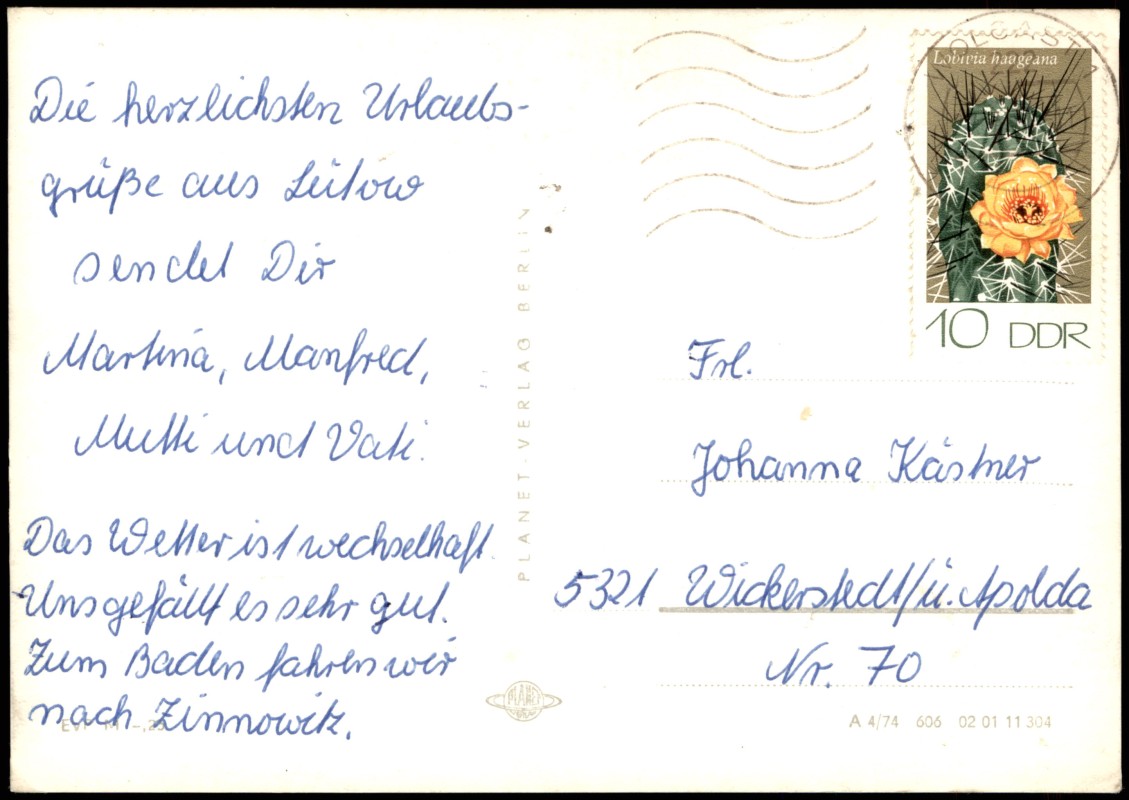 Die herzlichsten Urlaubs-
grüße aus Lütow
sendet Dir
Martina, Manfred,
Mutti und Vati.
Das Wetter ist wechselhaft.
Uns gefällt es sehr gut.
Zum Baden fahren wir
nach Zinnowitz.
PLANET-VERLAG BERLIN
Lobivia haageana
10 DDR
Frl.
Johanna Kästner
5321 Wickerstedt/ü. Apolda
Nr. 70
PLANET
A 4/74 606 02 01 11 304